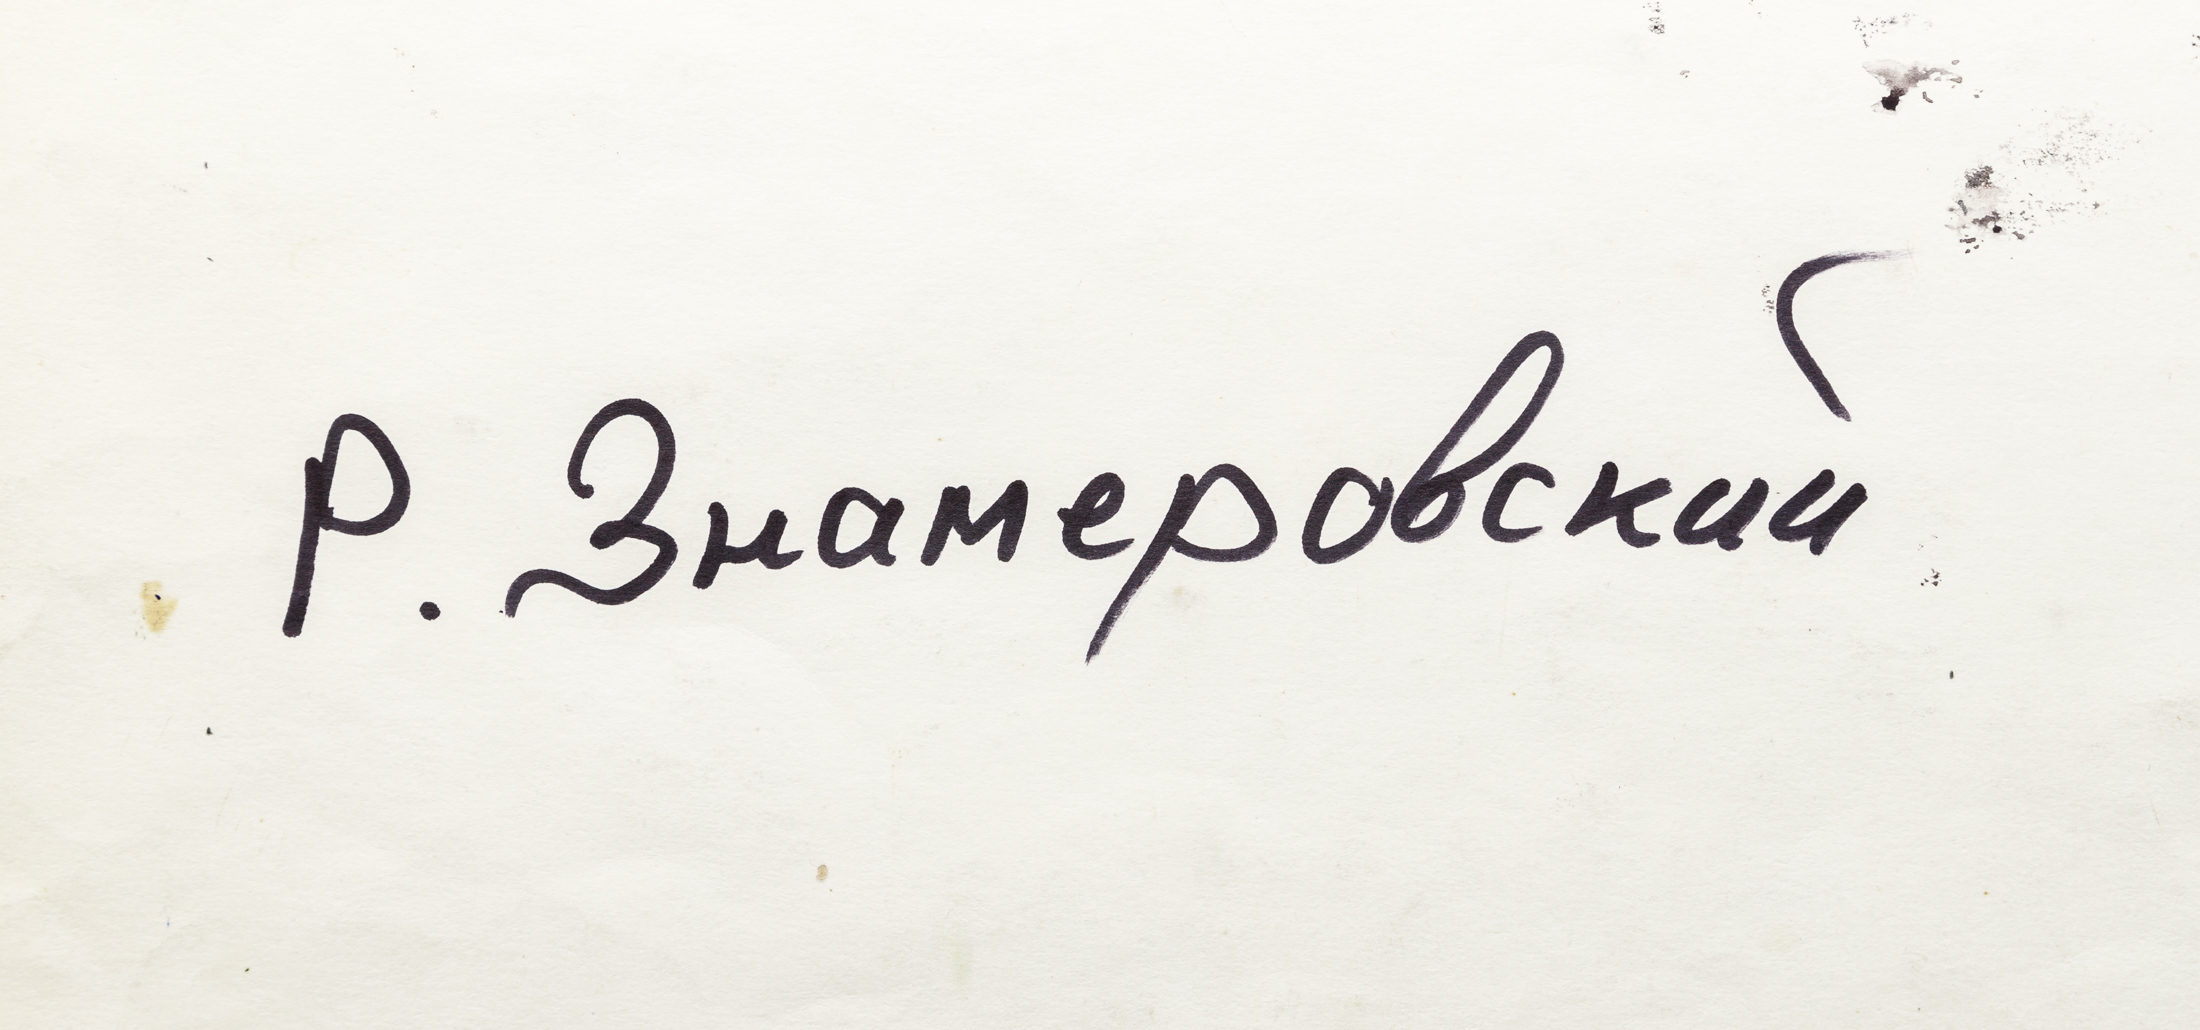 Р. Знамеровский